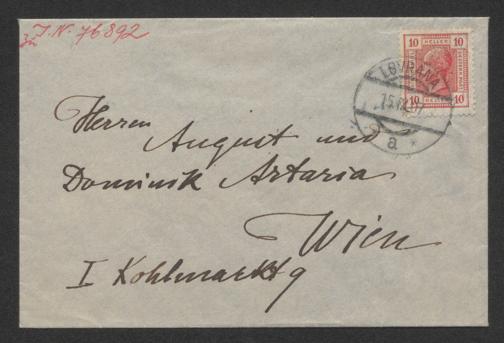 zu I.N. 76892
10 HELLER 10
10 10
LOVRANA
a
Herren
August und
Dominik Artaria
Wien
I Kohlmarkt 9